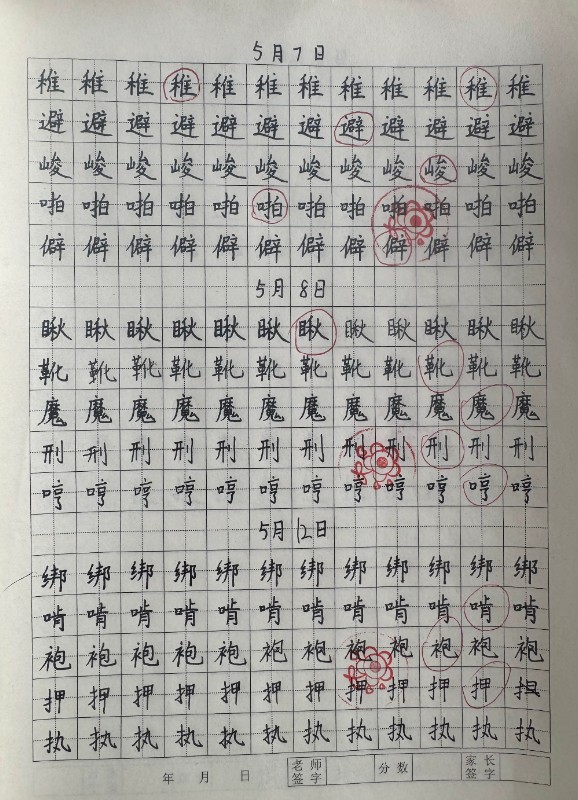 5月7日
稚稚稚稚稚稚稚稚稚稚稚稚
避避避避避避避避避避避避
峻峻峻峻峻峻峻峻峻峻峻峻
啪啪啪啪啪啪啪啪啪啪啪啪
僻僻僻僻僻僻僻僻僻僻僻僻
5月8日
瞅瞅瞅瞅瞅瞅瞅瞅瞅瞅瞅瞅
靴靴靴靴靴靴靴靴靴靴靴靴
魔魔魔魔魔魔魔魔魔魔魔魔
刑刑刑刑刑刑刑刑刑刑刑刑
哼哼哼哼哼哼哼哼哼哼哼哼
5月12日
绑绑绑绑绑绑绑绑绑绑绑绑
啃啃啃啃啃啃啃啃啃啃啃啃
袍袍袍袍袍袍袍袍袍袍袍袍
押押押押押押押押押押押担
执执执执执执执执执执执执
年 月 日 老师签字 分数 家长签字